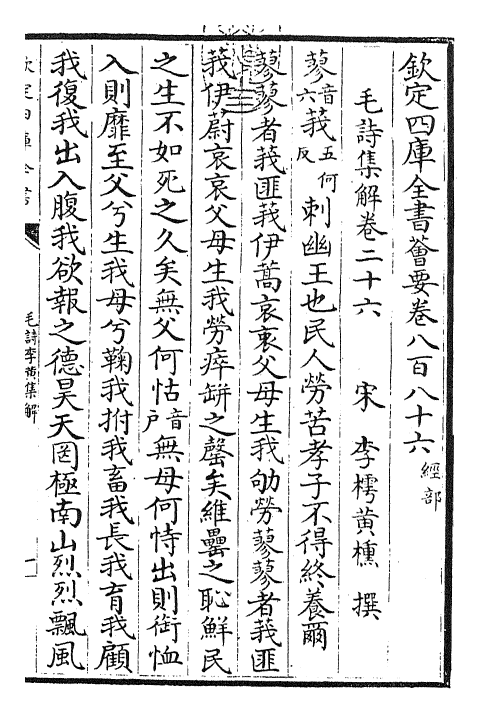 欽定四庫全書薈要卷八百八十六 經部
毛詩集解卷二十六 宋 李樗黃櫄 撰
蓼音六莪五何反刺幽王也民人勞苦孝子不得終養爾
蓼蓼者莪匪莪伊蒿哀哀父母生我劬勞蓼蓼者莪匪
莪伊蔚哀哀父母生我勞瘁缾之罄矣維罍之恥鮮民
之生不如死之久矣無父何怙音戶無母何恃出則銜恤
入則靡至父兮生我母兮鞠我拊我畜我長我育我顧
我復我出入腹我欲報之德昊天罔極南山烈烈飄風
欽定四庫全書
毛詩李黃集解
一